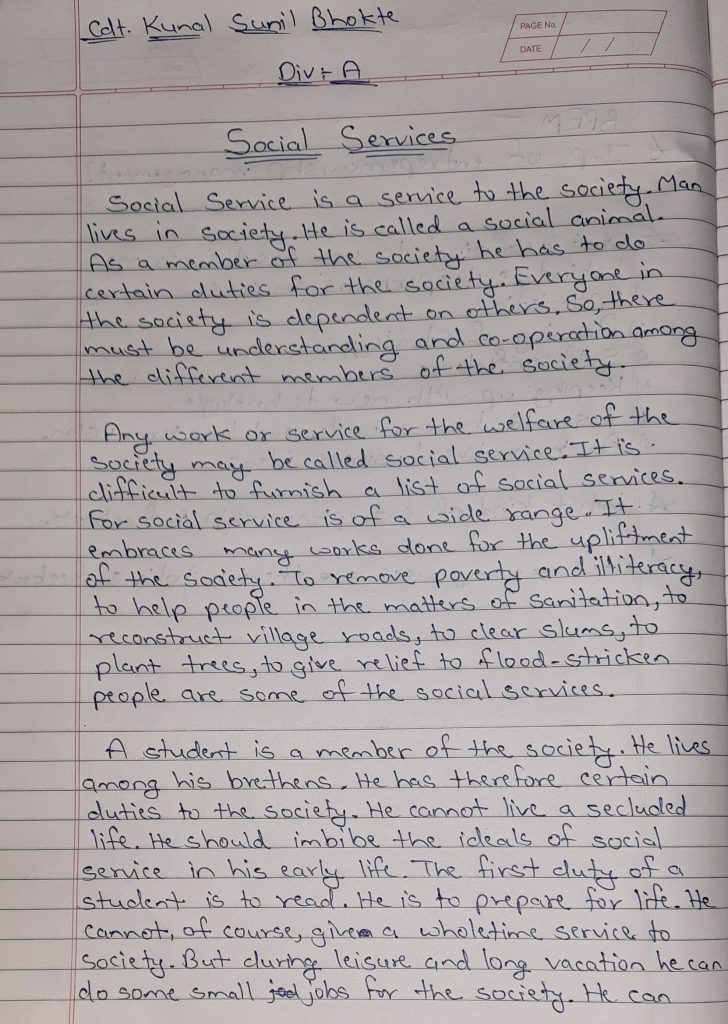 Cdt. Kunal Sunil Bhokte
PAGE No.
DATE / /
Div:- A
Social Services
Social Service is a service to the society. Man
lives in society. He is called a social animal.
As a member of the society he has to do
certain duties for the society. Everyone in
the society is dependent on others. So, there
must be understanding and co-operation among
the different members of the society.
Any work or service for the welfare of the
society may be called social service. It is
difficult to furnish a list of social services.
For social service is of a wide range. It
embraces many works done for the upliftment
of the society. To remove poverty and illiteracy,
to help people in the matters of sanitation, to
reconstruct village roads, to clear slums, to
plant trees, to give relief to flood-stricken
people are some of the social services.
A student is a member of the society. He lives
among his brethens. He has therefore certain
duties to the society. He cannot live a secluded
life. He should imbibe the ideals of social
service in his early life. The first duty of a
student is to read. He is to prepare for life. He
cannot, of course, give a wholetime service to
society. But during leisure and long vacation he can
do some small jobs for the society. He can